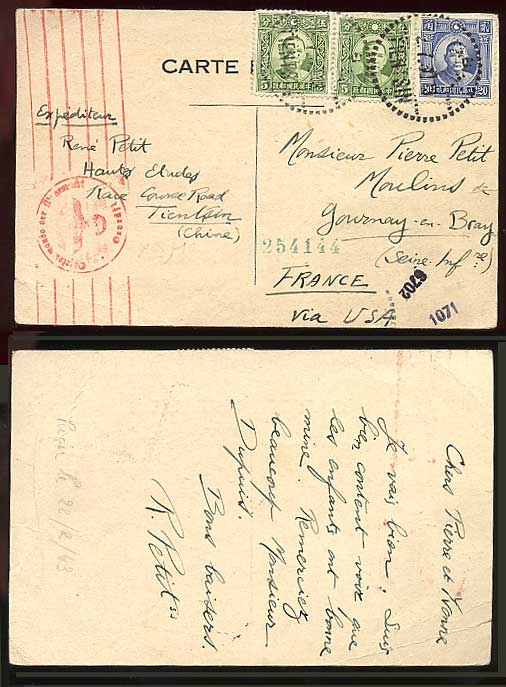 CARTE
Expéditeur
René Petit
Hautes Etudes
Race Course Road
Tientsin
(Chine)
Monsieur Pierre Petit
Moulins de
Gournay-en-Bray
(Seine-Infre)
FRANCE
via USA
254144
6702
1071
5
5
20
Chers Pierre et Yvonne
Je vais bien. Suis
bien content voir que
les enfants ont bonne
mine. Remerciez
beaucoup Monsieur
Dupuis.
Bons baisers.
R. Petit
22/2/43